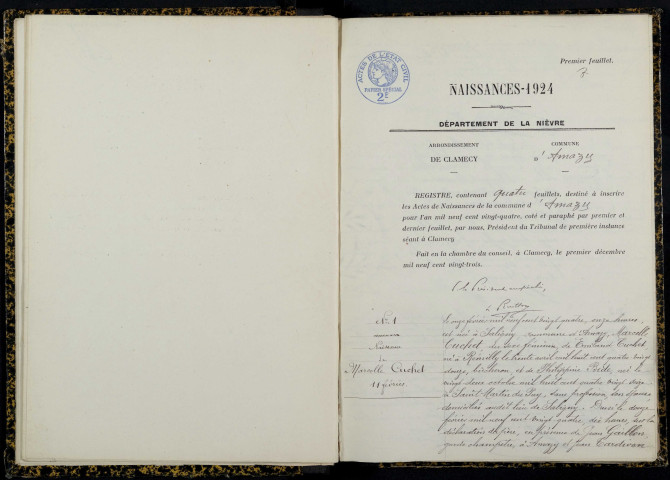 Premier feuillet.
ACTES DE L'ETAT CIVIL
PAPIER SPECIAL
2F
NAISSANCES-1924
DÉPARTEMENT DE LA NIÈVRE
ARRONDISSEMENT
DE CLAMECY
COMMUNE
D' Amazy
REGISTRE, contenant quatre feuillets, destiné à inscrire
les Actes de Naissances de la commune d' Amazy
pour l'an mil neuf cent vingt-quatre, coté et paraphé par premier et
dernier feuillet, par nous, Président du Tribunal de première instance
séant à Clamecy
Fait en la chambre du conseil, à Clamecy, le premier décembre
mil neuf cent vingt-trois.
Le Président
N° 1
Naissance
de
Marcelle Cuchet
11 février
Le onze février mil neuf cent vingt quatre, onze heures,
est née à Saligny commune d'Amazy, Marcelle
Cuchet, du sexe féminin, de Cuchet
né à le trente avril mil huit cent quatre vingt
douze, bûcheron, et de Philippine née le
vingt deux octobre mil huit cent quatre vingt
à Saint Martin du Puy, sans profession, son épouse
domiciliés audit lieu de Saligny. Dressé le douze
février mil neuf cent vingt quatre, heures, sur la
déclaration du père, en présence de Jean
garde champêtre à Amazy et Jean